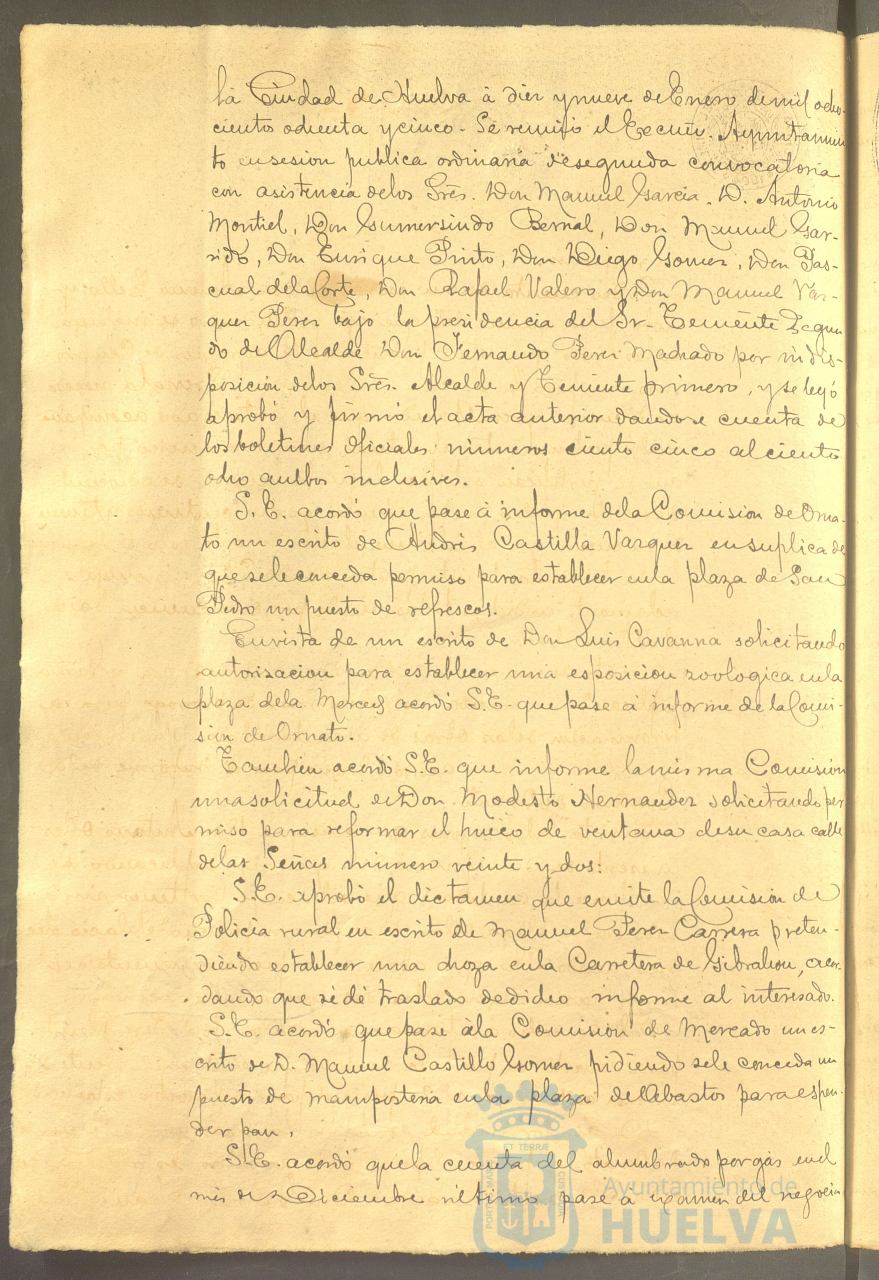 la Ciudad de Huelva á diez y nueve de Enero de mil ocho-
ciento ochenta y cinco. Se reunió el Excmo. Ayuntamien
to en sesion publica ordinaria de segunda convocatoria
con asistencia de los Sres. Don Manuel Garcia, D. Antonio
Montiel, Don Gumersindo Bernal, Don Manuel Gar-
rido, Don Enrique Pinto, Don Diego Gomez, Don Pas-
cual de la Corte, Don Rafael Valero y Don Manuel Vaz-
quez Perez bajo la presidencia del Sr. Teniente Segun
do de Alcalde Don Fernando Perez Machado por indis-
posición de los Sres. Alcalde y Teniente primero, y se leyó
aprobó y firmó el acta anterior dandose cuenta de
los boletines oficiales números ciento cinco al ciento
ocho ambos inclusives.
S. E. acordó que pase á informe de la Comision de Orna-
to un escrito de Andrés Castilla Vazquez en suplica de
que se le conceda permiso para establecer en la plaza de San
Pedro un puesto de refrescos.
En vista de un escrito de Don Luis Cavanna solicitando
autorizacion para establecer una esposición zoologica en la
plaza de la Merced acordó S.E. que pase á informe de la Comi-
sion de Ornato.
Tambien acordó S.E. que informe la misma Comision
una solicitud de Don Modesto Hernandez solicitando per
miso para reformar el hueco de ventana de su casa calle
de las Señas número veinte y dos:
S.E. aprobó el dictamen que emite la Comision de
Policia rural en escrito de Manuel Perez Carrera preten-
diendo establecer una choza en la Carretera de Gibraleon, acor-
dando que se dé traslado de dicho informe al interesado.
S.E. acordó que pase á la Comision de Mercado un es-
crito de D. Manuel Castillo Gomez pidiendo se le conceda un
puesto de mamposteria en la plaza de Abastos para espen-
der pan.
S.E. acordó que la cuenta del alumbrado por gas en el
mes de Diciembre último pase á examen del negocia
ET TERRÆ
Ayuntamiento de
HUELVA